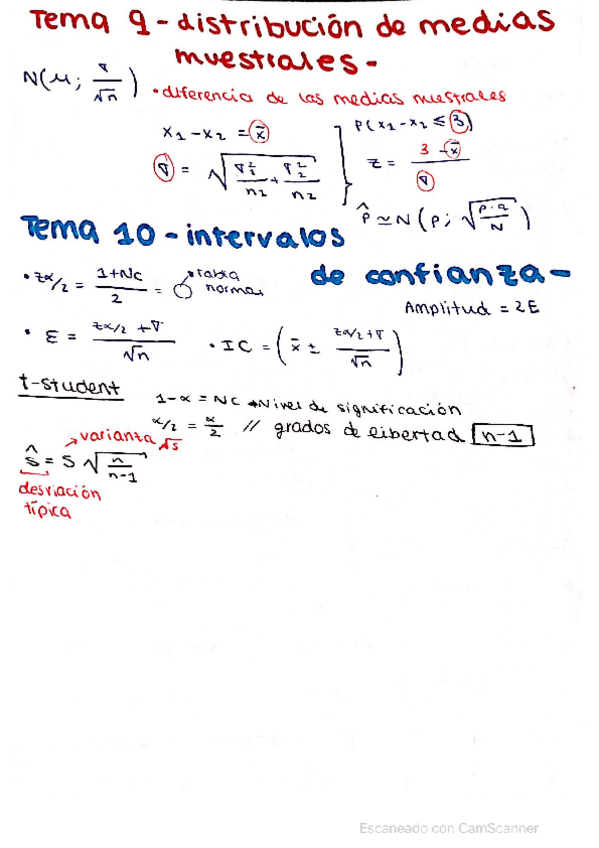 Tema 9 - distribución de medias
muestrales -
N(μ; σ/√n)
• diferencia de las medias muestrales
x1 - x2 = x̄
P(x1 - x2 ≤ 3)
σ = √(σ1²/n2 + σ2²/n2)
z = (3 - x̄)/σ
p̂ ≃ N(p; √(p·q/N))
Tema 10 - intervalos
de confianza -
• zα/2 = (1+Nc)/2 = O → tabla normal
Amplitud = 2E
• E = (zα/2 + σ)/√n
• IC = (x̄ ± (zα/2 + σ)/√n)
t-student
1-α = Nc → Nivel de significación
α/2 = α/2 // grados de libertad n-1
→ varianza √s
ŝ = s √(n/(n-1))
desviación
típica
Escaneado con CamScanner